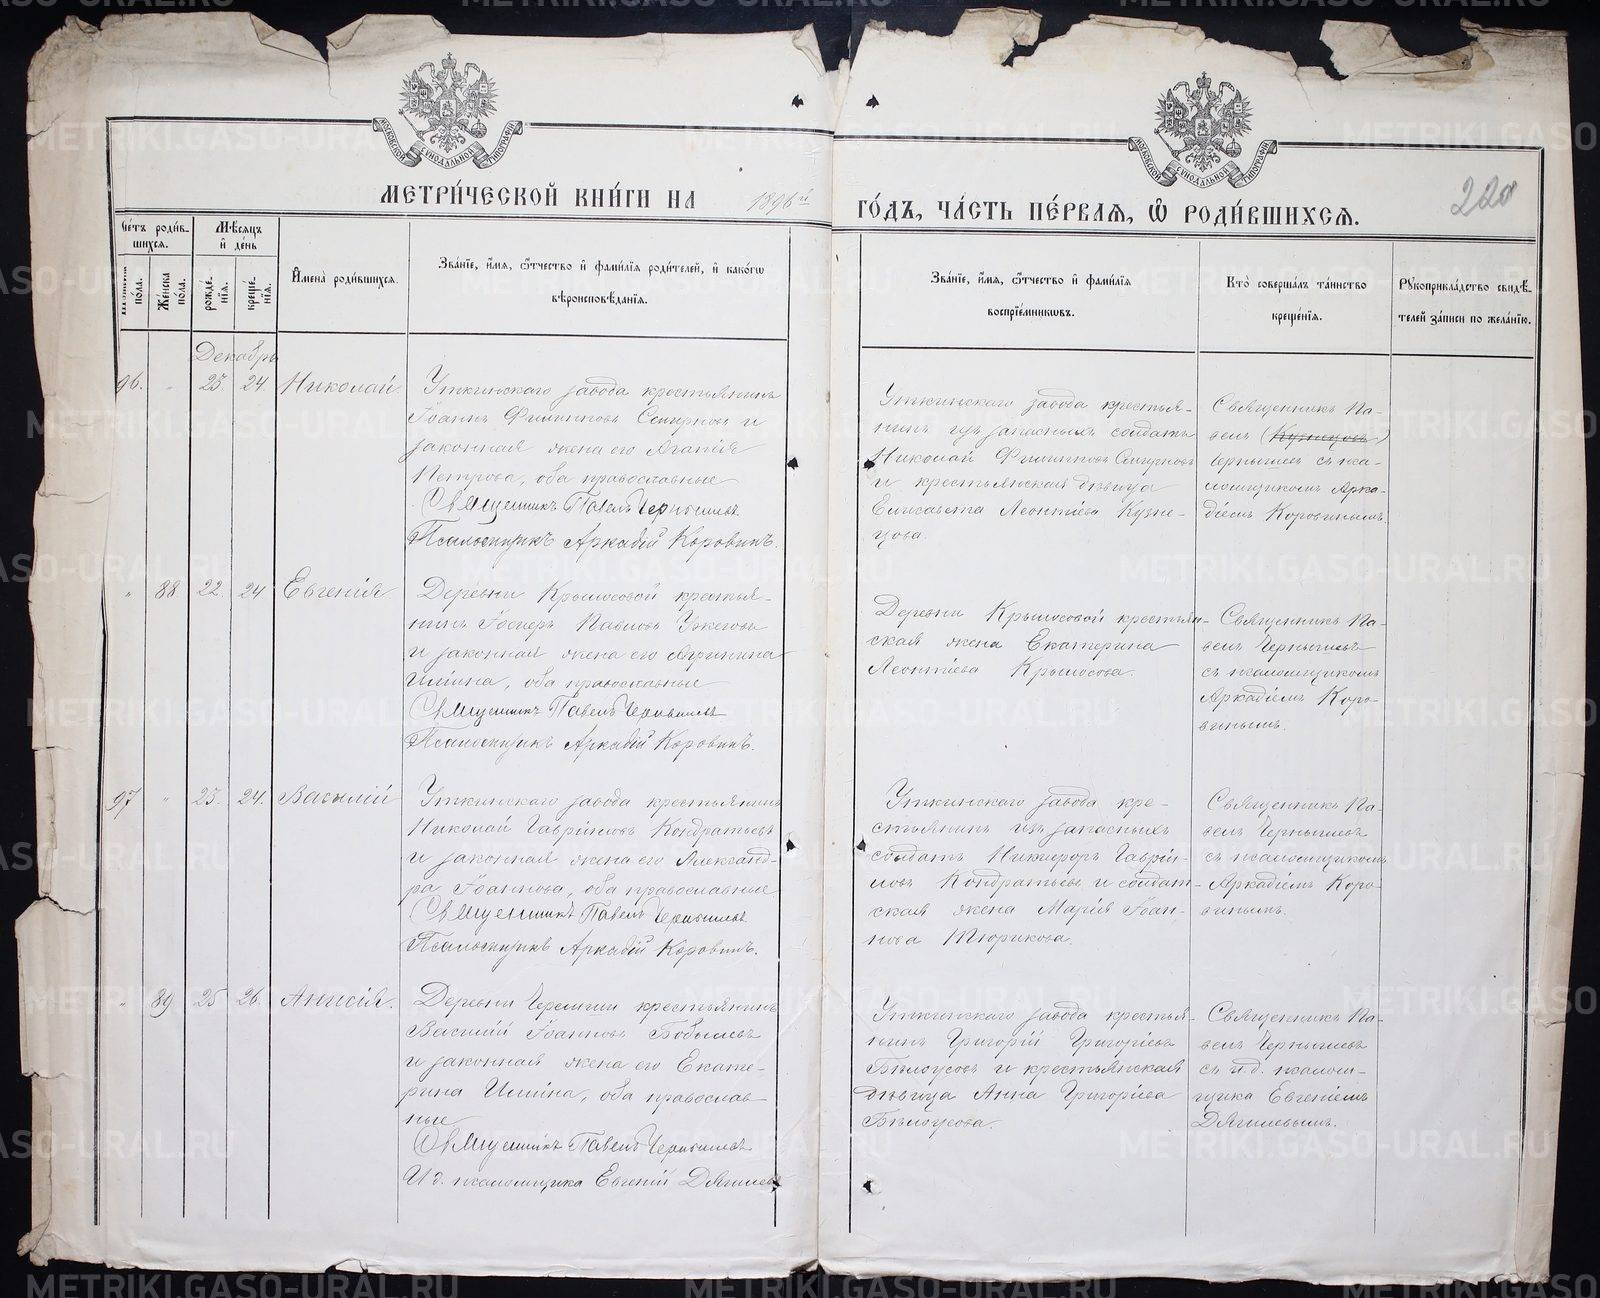 МОСКОВСКОЙ СѴНОДАЛЬНОЙ ТИПОГРАФІИ
МОСКОВСКОЙ СѴНОДАЛЬНОЙ ТИПОГРАФІИ
МЕТРИ́ЧЕСКОЙ КНИ́ГИ НА 1896й ГО́ДЪ, ЧА́СТЬ ПЕ́РВАѦ, Ѡ҆ РОДИ́ВШИХСѦ.
220
Сче́тъ роди́в-
шихсѧ.
Же́нска по́ла.
Мѣ́сѧцъ и҆ де́нь
рожде́-
нїѧ.
креще́-
нїѧ.
И҆мена̀ роди́вшихсѧ.
Зва́нїе, и҆́мѧ, ѻ҆́тчество и҆ фами́лїѧ роди́телей, и҆ како́гѡ
вѣроисповѣ́данїѧ.
Зва́нїе, и҆́мѧ, ѻ҆́тчество и҆ фами́лїѧ
воспрїе́мникѡвъ.
Кто̀ соверша́лъ та́инство
креще́нїѧ.
Рꙋкоприкла́дство свидѣ́-
телей за́писи по жела́нїю.
Декабрь
96. " 23 24 Николай
Уткинскаго завода крестьянинъ
Іоаннъ Филипповъ Смирновъ и
законная жена его Агапія
Петрова, оба православные
Священникъ Павелъ Чернышевъ
Псаломщикъ Аркадій Коровинъ.
Уткинскаго завода крестья-
нинъ изъ запасныхъ солдатъ
Николай Филипповъ Смирновъ
и крестьянская дѣвица
Елисавета Леонтіева Кузне-
цова.
Священникъ Па-
велъ (Кузнецовъ)
Чернышевъ съ пса-
ломщикомъ Арка-
діемъ Коровинымъ.
" 88 22. 24 Евгенія
Деревни Крылосовой крестья-
нинъ Павловъ
и законная жена его Агрипина
Ильина, оба православные
Священникъ Павелъ Чернышевъ
Псаломщикъ Аркадій Коровинъ.
Деревни Крылосовой крестьян-
ская жена Екатерина
Леонтіева Крылосова.
Священникъ Па-
велъ Чернышевъ
съ псаломщикомъ
Аркадіемъ Коро-
винымъ.
97 " 23. 24. Василій
Уткинскаго завода крестьянинъ
Николай Гавріиловъ Кондратьевъ
и законная жена его Александ-
ра Іоаннова, оба православные
Священникъ Павелъ Чернышевъ
Псаломщикъ Аркадій Коровинъ.
Уткинскаго завода кре-
стьянинъ изъ запасныхъ
солдатъ Никифоръ Гаврій-
ловъ Кондратьевъ и солдат-
ская жена Марія Іоан-
нова Тюрикова.
Священникъ Па-
велъ Чернышевъ
съ псаломщикомъ
Аркадіемъ Коро-
винымъ.
" 89 25 26. Анисія.
Деревни Черемши крестьянинъ
Василій Іоанновъ Бобылевъ
и законная жена его Екате-
рина Ильина, оба православ-
ные
Священникъ Павелъ Чернышевъ
И д. псаломщика Евгеній Дягилевъ
Уткинскаго завода крестья-
нинъ Григорій Григоріевъ
Бѣлоусовъ и крестьянская
дѣвица Анна Григоріева
Бѣлоусова.
Священникъ Па-
велъ Чернышевъ
съ и д. псалом-
щика Евгеніемъ
Дягилевымъ.
METRIKI.GASO-URAL.RU